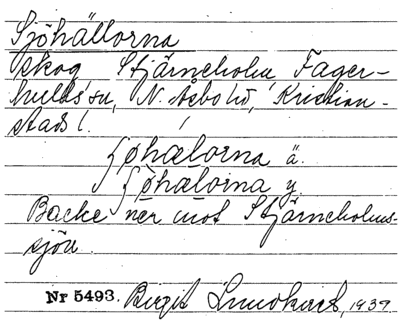 Sjöhällorna
skog Stjärneholm Fager-
hults sn, N. Åsbo hd, Kristian-
stads l.
ʃøhælorna ä.
ʃøhælorna y.
Backe ner mot Stjärneholms-
sjön.
Nr 5493. Birgit 1937.